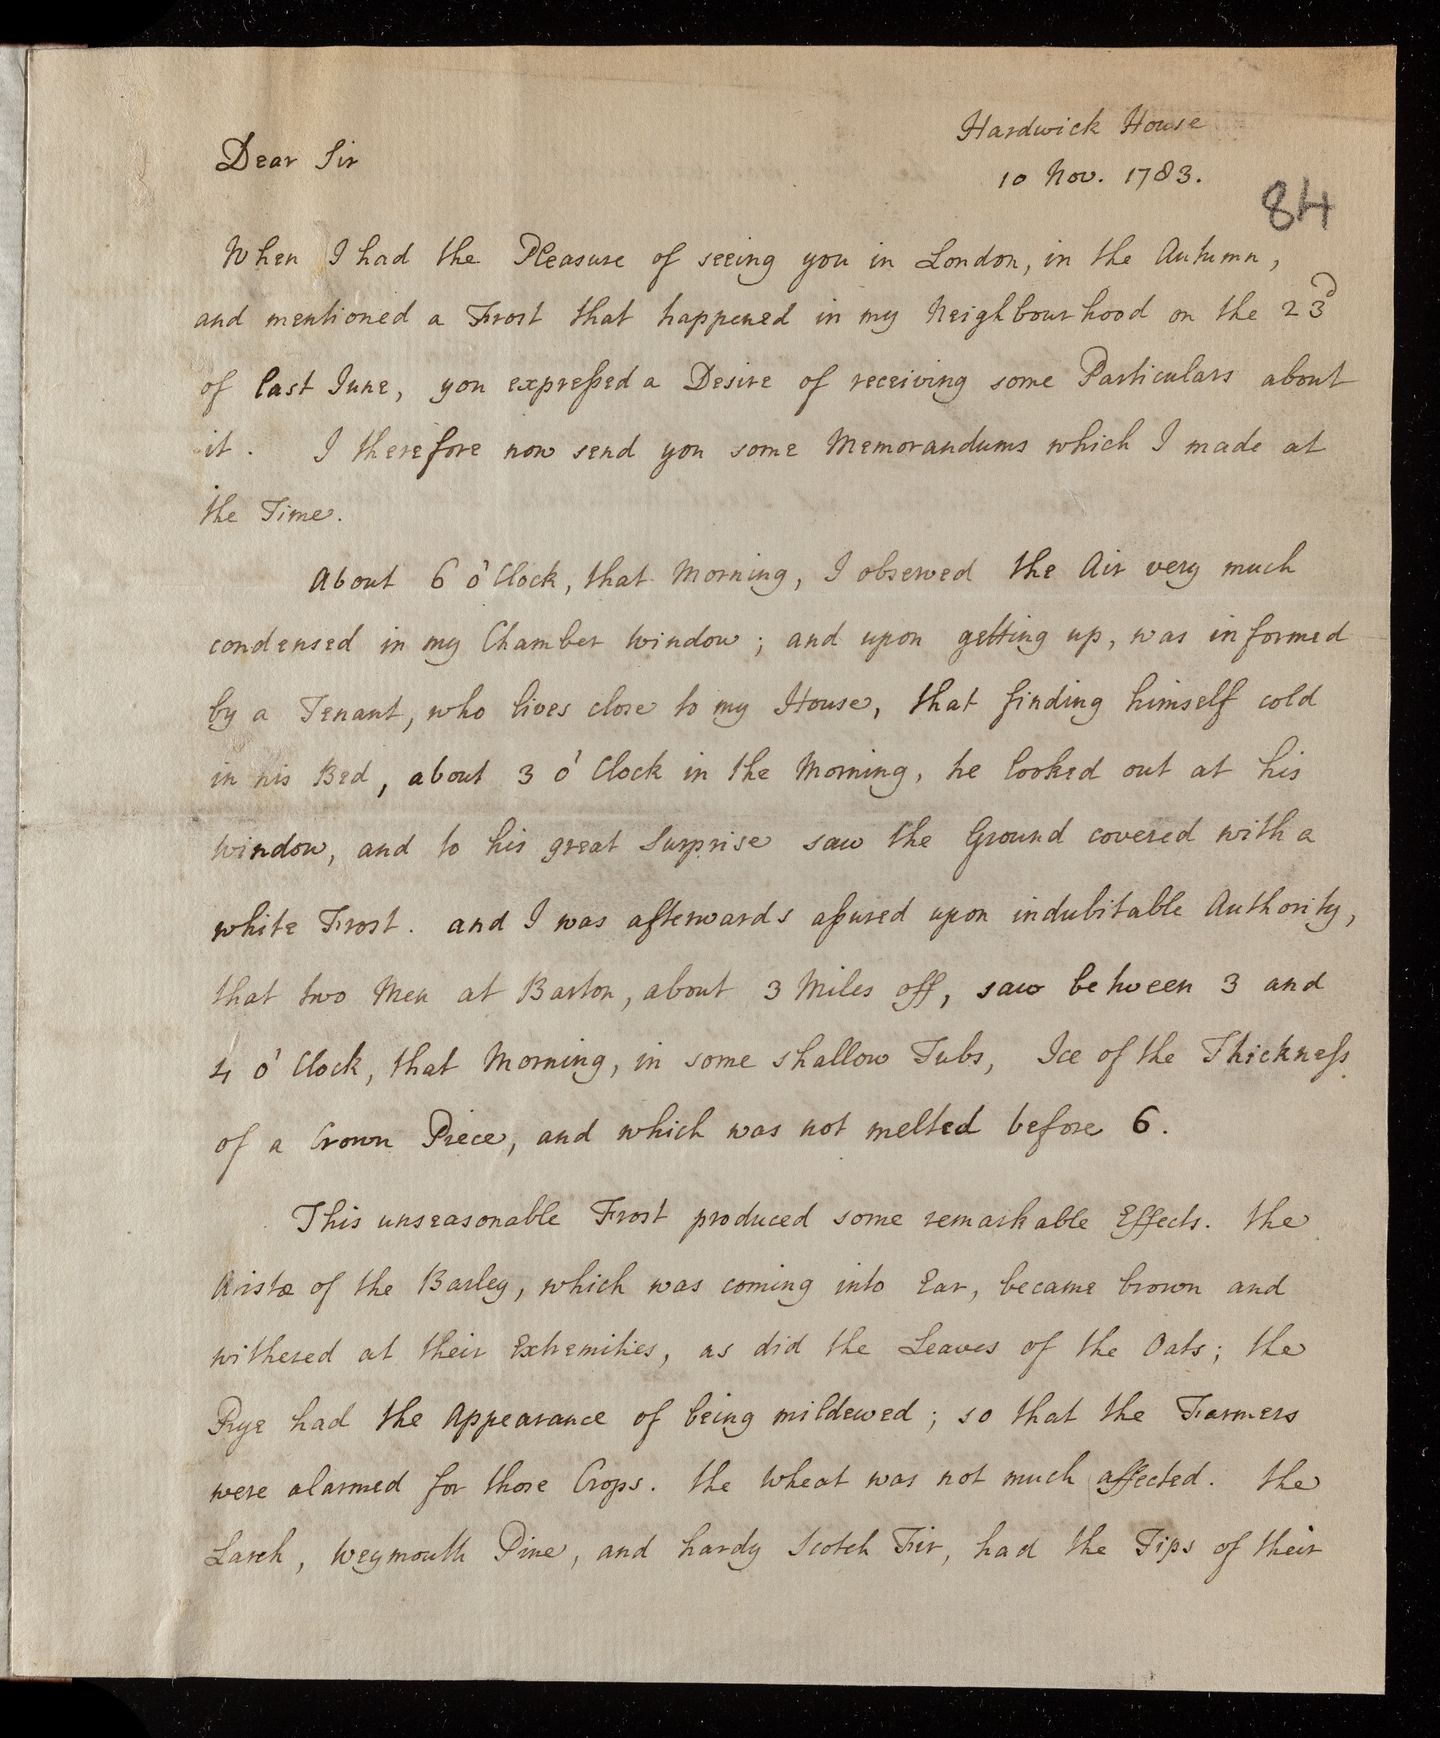 Hardwick House
Dear Sir
10 Nov. 1783.
84
When I had the Pleasure of seeing you in London, in the Autumn,
and mentioned a Frost that happened in my Neighbourhood on the 23d
of last June, you expreſsed a Desire of receiving some Particulars about
it. I therefore now send you some Memorandums which I made at
the Time.
About 6 o'Clock, that Morning, I observed the Air very much
condensed in my Chamber Window; and upon getting up, was informed
by a Tenant, who lives close to my House, that finding himself cold
in his Bed, about 3 o'Clock in the Morning, he looked out at his
Window, and to his great Surprise saw the Ground covered with a
white Frost. and I was afterwards aſsured upon indubitable Authority,
that two Men at Barton, about 3 Miles off, saw between 3 and
4 o'Clock, that Morning, in some shallow Tubs, Ice of the Thickneſs
of a Crown Piece, and which was not melted before 6.
This unseasonable Frost produced some remarkable Effects. The
Aristæ of the Barley, which was coming into Ear, became brown and
withered at their Extremities, as did the Leaves of the Oats; the
Rye had the Appearance of being mildewed; so that the Farmers
were alarmed for those Crops. The Wheat was not much affected. The
Larch, Weymouth Pine, and hardy Scotch Fir, had the Tips of their